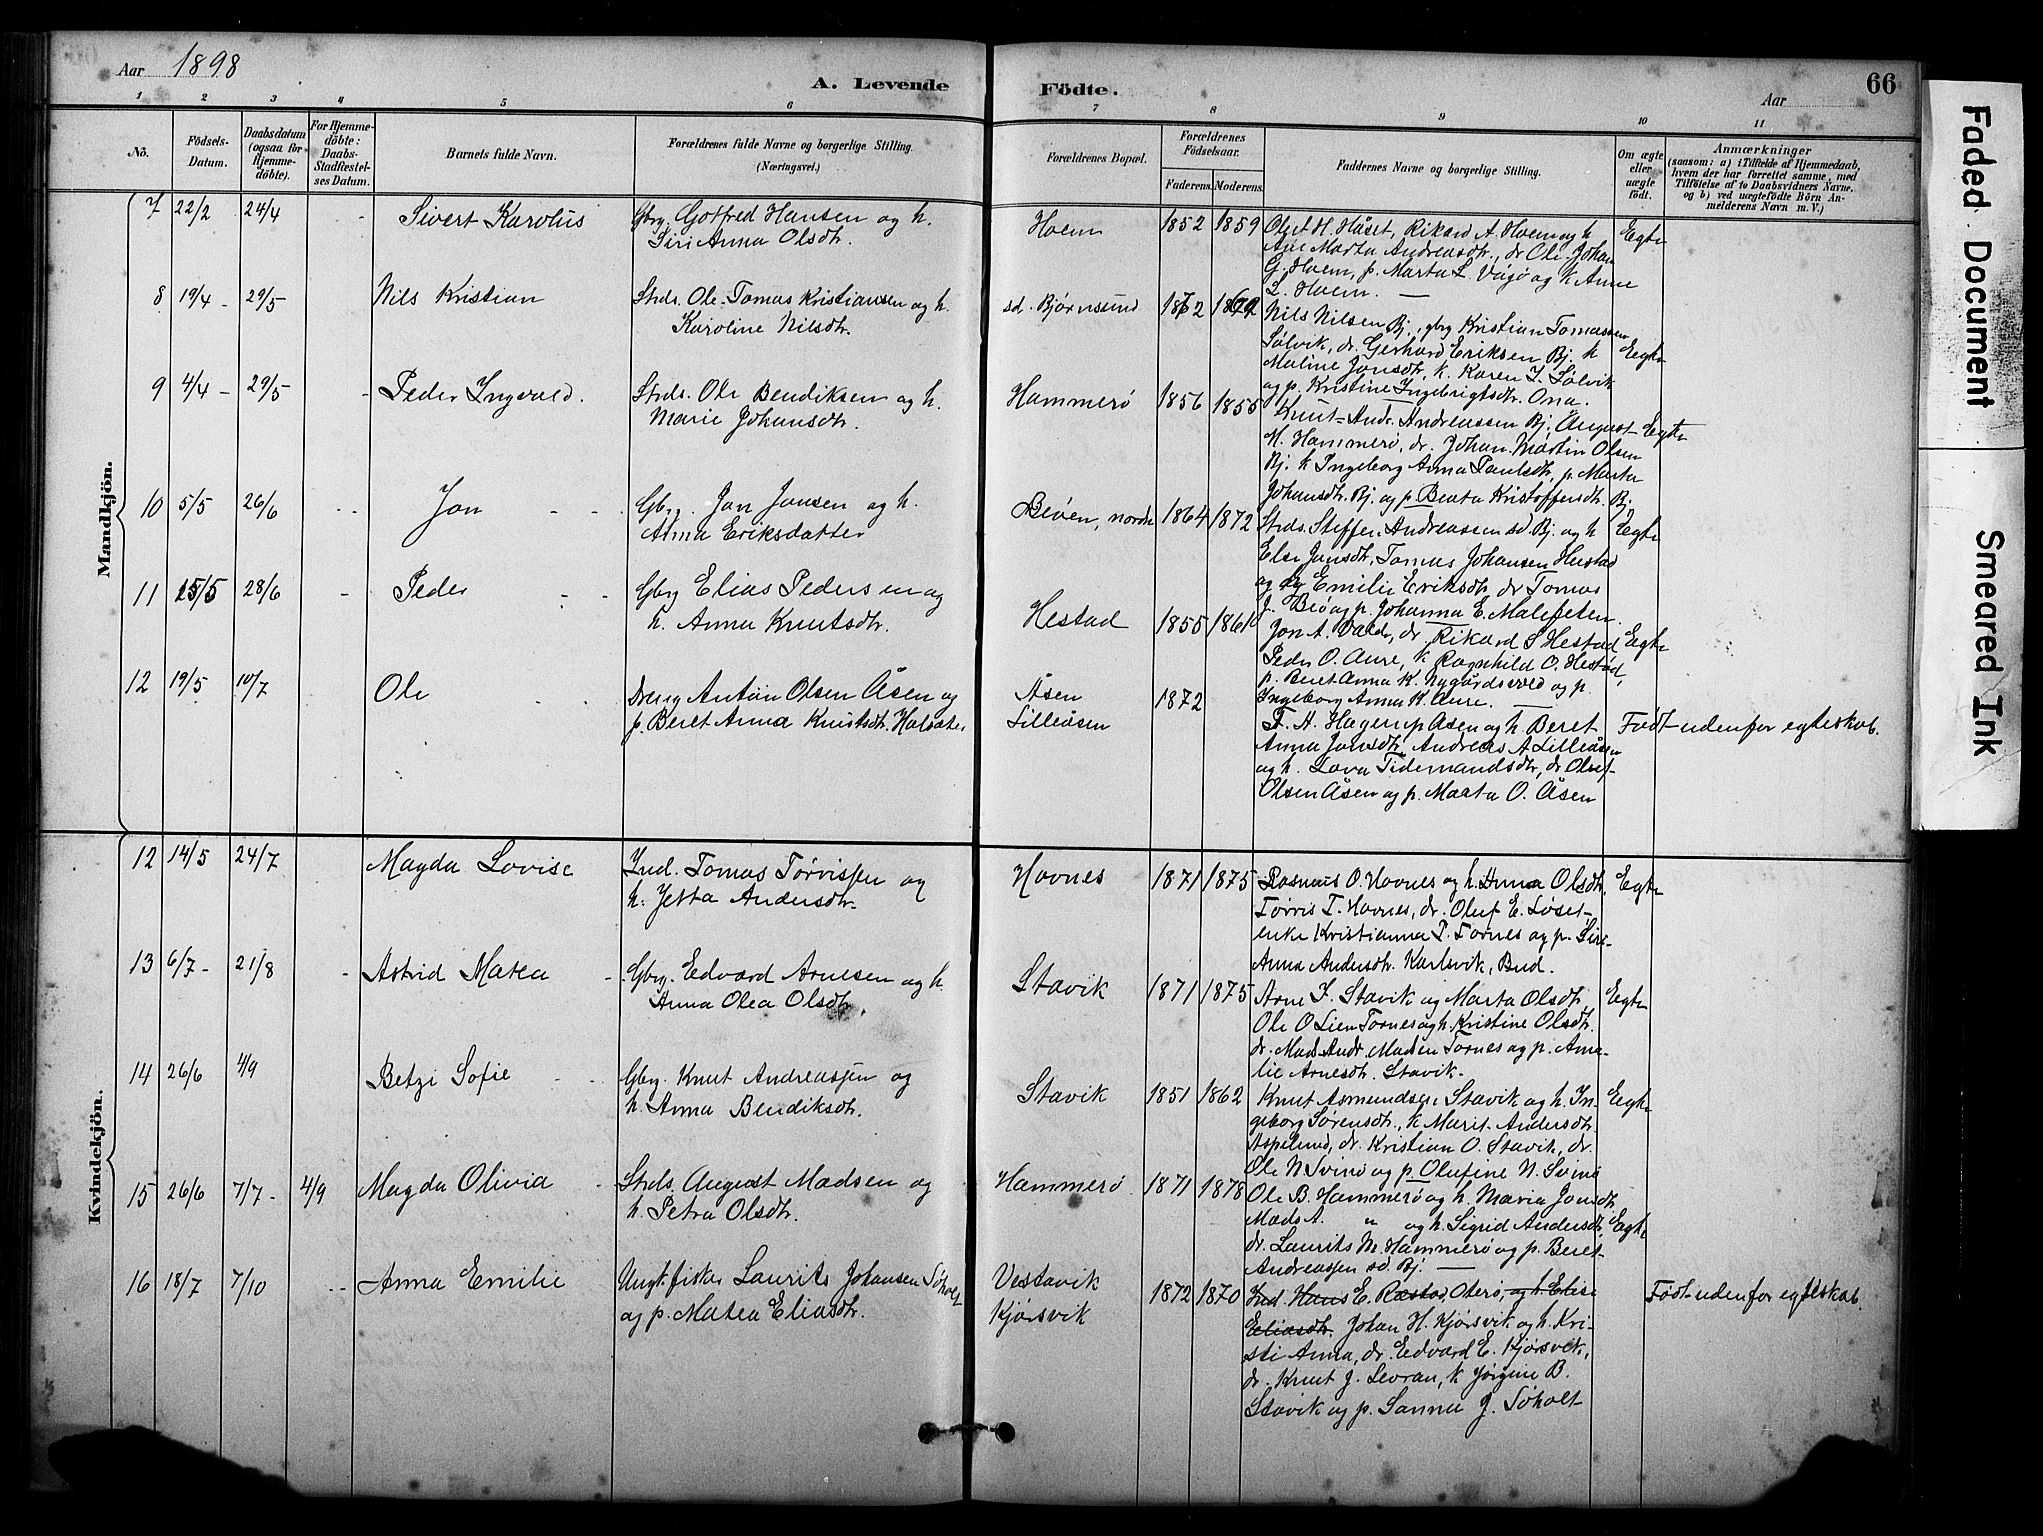 Aar 1898
A. Levende
Födte.
Aar
66
1 2 3 4 5 6 7 8 9 10 11
No.
Födsels-
Datum.
Daabsdatum
(ogsaa for
Hjemme-
döbte).
For Hjemme-
döbte:
Daabs-
Stadfæstel-
ses Datum.
Barnets fulde Navn.
Forældrenes fulde Navne og borgerlige Stilling.
(Næringsvei.)
Forældrenes Bopæl.
Forældrenes
Födselsaar.
Faderens. Moderens.
Faddernes Navne og borgerlige Stilling.
Om ægte
eller
uægte
födt.
Anmærkninger
(saasom: a) i Tilfælde af Hjemmedaab,
hvem der har forrettet samme, med
Tilföielse af to Daabsvidners Navne.
og b) ved uægtefödte Börn An-
melderens Navn m. V.)
Mandkjön.
7 22/2 24/4 - Sivert Karolus
Gbrg. Gotfred Hansen og h.
Siri Anna Olsdtr.
Hoem 1852 1859
Oluf H. Håset, Rikard A. Hoem og h
Ane Marta Andreasdtr., dr Ole Johan
G. Hoem, p. Marta L. Vågø og k Anne
L. Hoem.
Egte
8 19/4 - 29/5 Nils Kristian
Strds. Ole Tomas Kristiansen og h.
Karoline Nilsdtr.
sd. Bjørnsund 1872
Nils Nilsen Bj., gbrg Kristian Tomassen
Sølvik, dr. Gerhard Eriksen Bj. k
Maline Jonsdtr, k. Karen T. Sølvik
og p. Kristine Ingebrigtsdtr. Ona.
Egte
9 4/4 - 29/5 - Peder Ingvald.
Strds. Ole Bendiksen og h.
Marie Johansdtr.
Hammerø 1856 1855
Knut Andr. Andreassen Bj. August
M. Hammerø, dr. Johan Martin Olsen
Bj. k Ingeborg Anna Paulsdtr, p. Marta
Johansdtr. Bj. og p. Beata Kristoffersdtr. Bj.
Egte
10 5/5 26/6 - Jon - -
Gbrg. Jon Jonsen og h.
Anna Eriksdatter
Beøen, nordre 1864 1872
Strds. Steffen Andreassen sd Bj. og h
Else Jonsdtr, Tomas Johansen Hustad
og Emilie Eriksdtr, dr Tomas
J. Beø og p. Johanna E. Malefeten.
Egte
11 25/5 28/6 - Peder - -
Gbrg Elias Pedersen og
h. Anna Knutsdtr.
Hestad 1855 1861
Jon A. Vald, dr. Rikard S Hestad
Peder O. Aure, k Ragnhild O. Hestad,
p. Beret Anna K. Nygårdsvold og p.
Ingeborg Anna K. Aure.
Egte
12 19/5 10/7 Ole
Dreng Anton Olsen Åsen og
p. Beret Anna Knutsdtr. Halsåter
Åsen
Lilleåsen
1872
T. H. Hagerup Åsen og h Beret
Anna Jonsdtr, Andreas A Lilleåsen
og h. Lova Tidemandsdtr, dr Oluf
Olsen Åsen og p. Marta O. Åsen
Født udenfor egteskab.
Kvindekjön.
12 14/5 24/7 Magda Lovise
Ind. Tomas Tørrissen og
h. Jetta Andersdtr.
Hovnes 1871 1875
Rasmus O. Hovnes og h. Anna Olsdtr,
Tørris T. Hovnes, dr. Oluf E. Løset
enke Kristianna P. Tornes og p. Siri
Anna Andersdtr. Karlsvik, Bud.
Egte
13 6/7 - 21/8 - Astrid Matea -
Gbrg. Edvard Arnesen og h.
Anna Olea Olsdtr.
Stavik 1871 1875
Arne J. Stavik og Marta Olsdtr,
Ole O Lien Tornes og h. Kristine Olsdtr.
dr. Mads Andr. Madsen Tornes og p. Ama-
lie Arnesdtr. Stavik.
Egte
14 26/6 4/9 Betzi Sofie - -
Gbrg. Knut Andreassen og
h. Anna Bendiksdtr.
Stavik 1851 1862
Knut Asmundsen Stavik og h. In-
geborg Sørensdtr., k Marit Andersdtr.
Aspelund, dr. Kristian O. Stavik, dr.
Ole N Svinø og p. Olufine N. Svinø
Egte
15 26/6 7/7 - 4/9 Magda Olivia -
Strds. August Madsen og
h. Petra Olsdtr.
Hammerø 1871 1878
Ole B. Hammerø og h. Maria Jonsdtr,
Mads A. " og h. Sigrid Andersdtr,
dr. Laurits M. Hammerø og p. Beret
Andreassen sd. Bj.
Egte
16 18/7 7/10 - Anna Emilie
Ungk. fisker Laurits Johansen Søholt
og p. Matea Eliasdtr.
Vestavik
Kjørsvik
1872 1870
Ind. Hans E. Rastad, Oterø, og h. Elise
Eliasdtr. Johan H. Kjørsvik og h. Kri-
sti Anna, dr. Edvard E. Kjørsvik,
dr. Knut J. Levran, k Jørgine B.
Stavik og p. Sanna J. Søholt
Født udenfor egteskab.
Faded Document
Smeared Ink